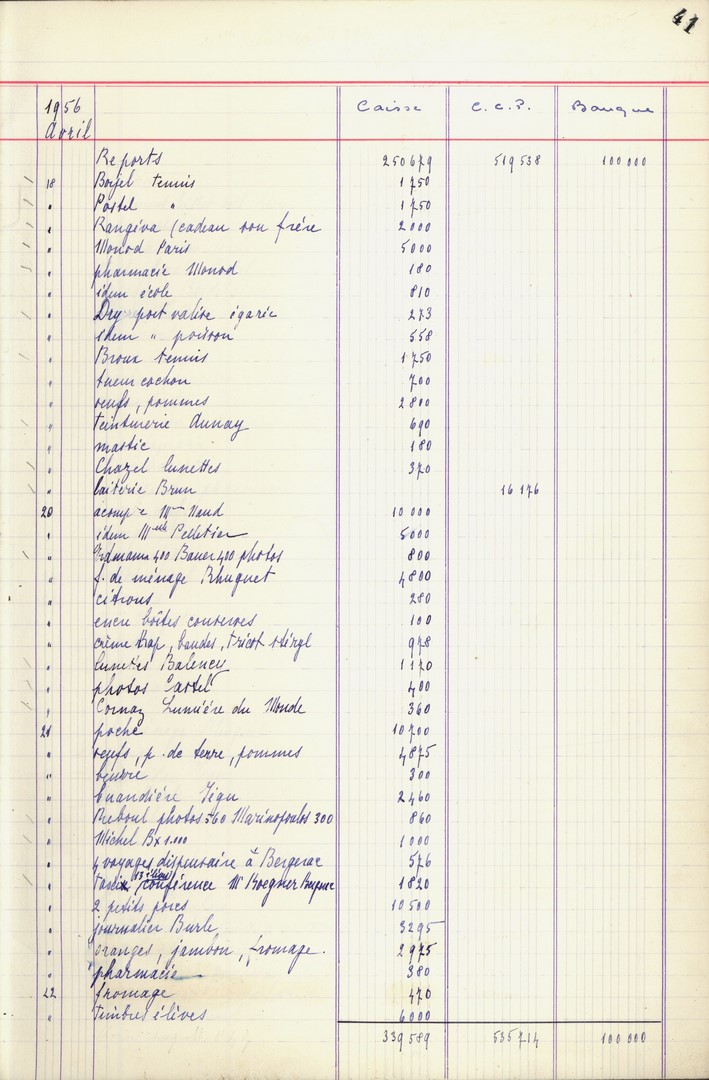 41
1956 Caisse C.C.P. Banque
Avril
Reports 250679 519538 100 000
18 Boijel tennis 1750
" Postel " 1750
" Rangéva (cadeau son frère 2000
" Monod Paris 5000
" pharmacie Monod 180
" idem école 810
" Dry port valise égarée 273
" idem " poisson 558
" Broux tennis 1750
" tueur cochon 700
" oeufs, pommes 2800
" teinturerie Aunay 690
" mastic 180
" Chazel lunettes 370
" laiterie Brun 16 176
20 acompte Mme Naud 10 000
" idem Melle Pelletier 5000
" Erdmann 400 Bauer 400 photos 800
" f. de ménage Rhuguet 4800
" citrons 280
" encre boîtes conserves 100
" crème Hap, bandes, tricot stéryl 978
" lunettes Balency 1170
" photos Castel 400
" Cornaz Lumière du Monde 360
21 poche 10700
" oeufs, p. de terre, pommes 4875
" beurre 300
" buandière Jégu 2460
" Reboul photos 560 Marinopoulos 300 860
" Michel Bx 1.000 1000
" 4 voyages dispensaire à Bergerac 576
" Taxi (13 élèves) conférence Mr Boegner 1820
" 2 petits porcs 10 500
" journalier Burle 3295
" oranges, jambon, fromage. 2975
" pharmacie 380
22 fromage 470
" timbres élèves 6000
339 589 535714 100 000